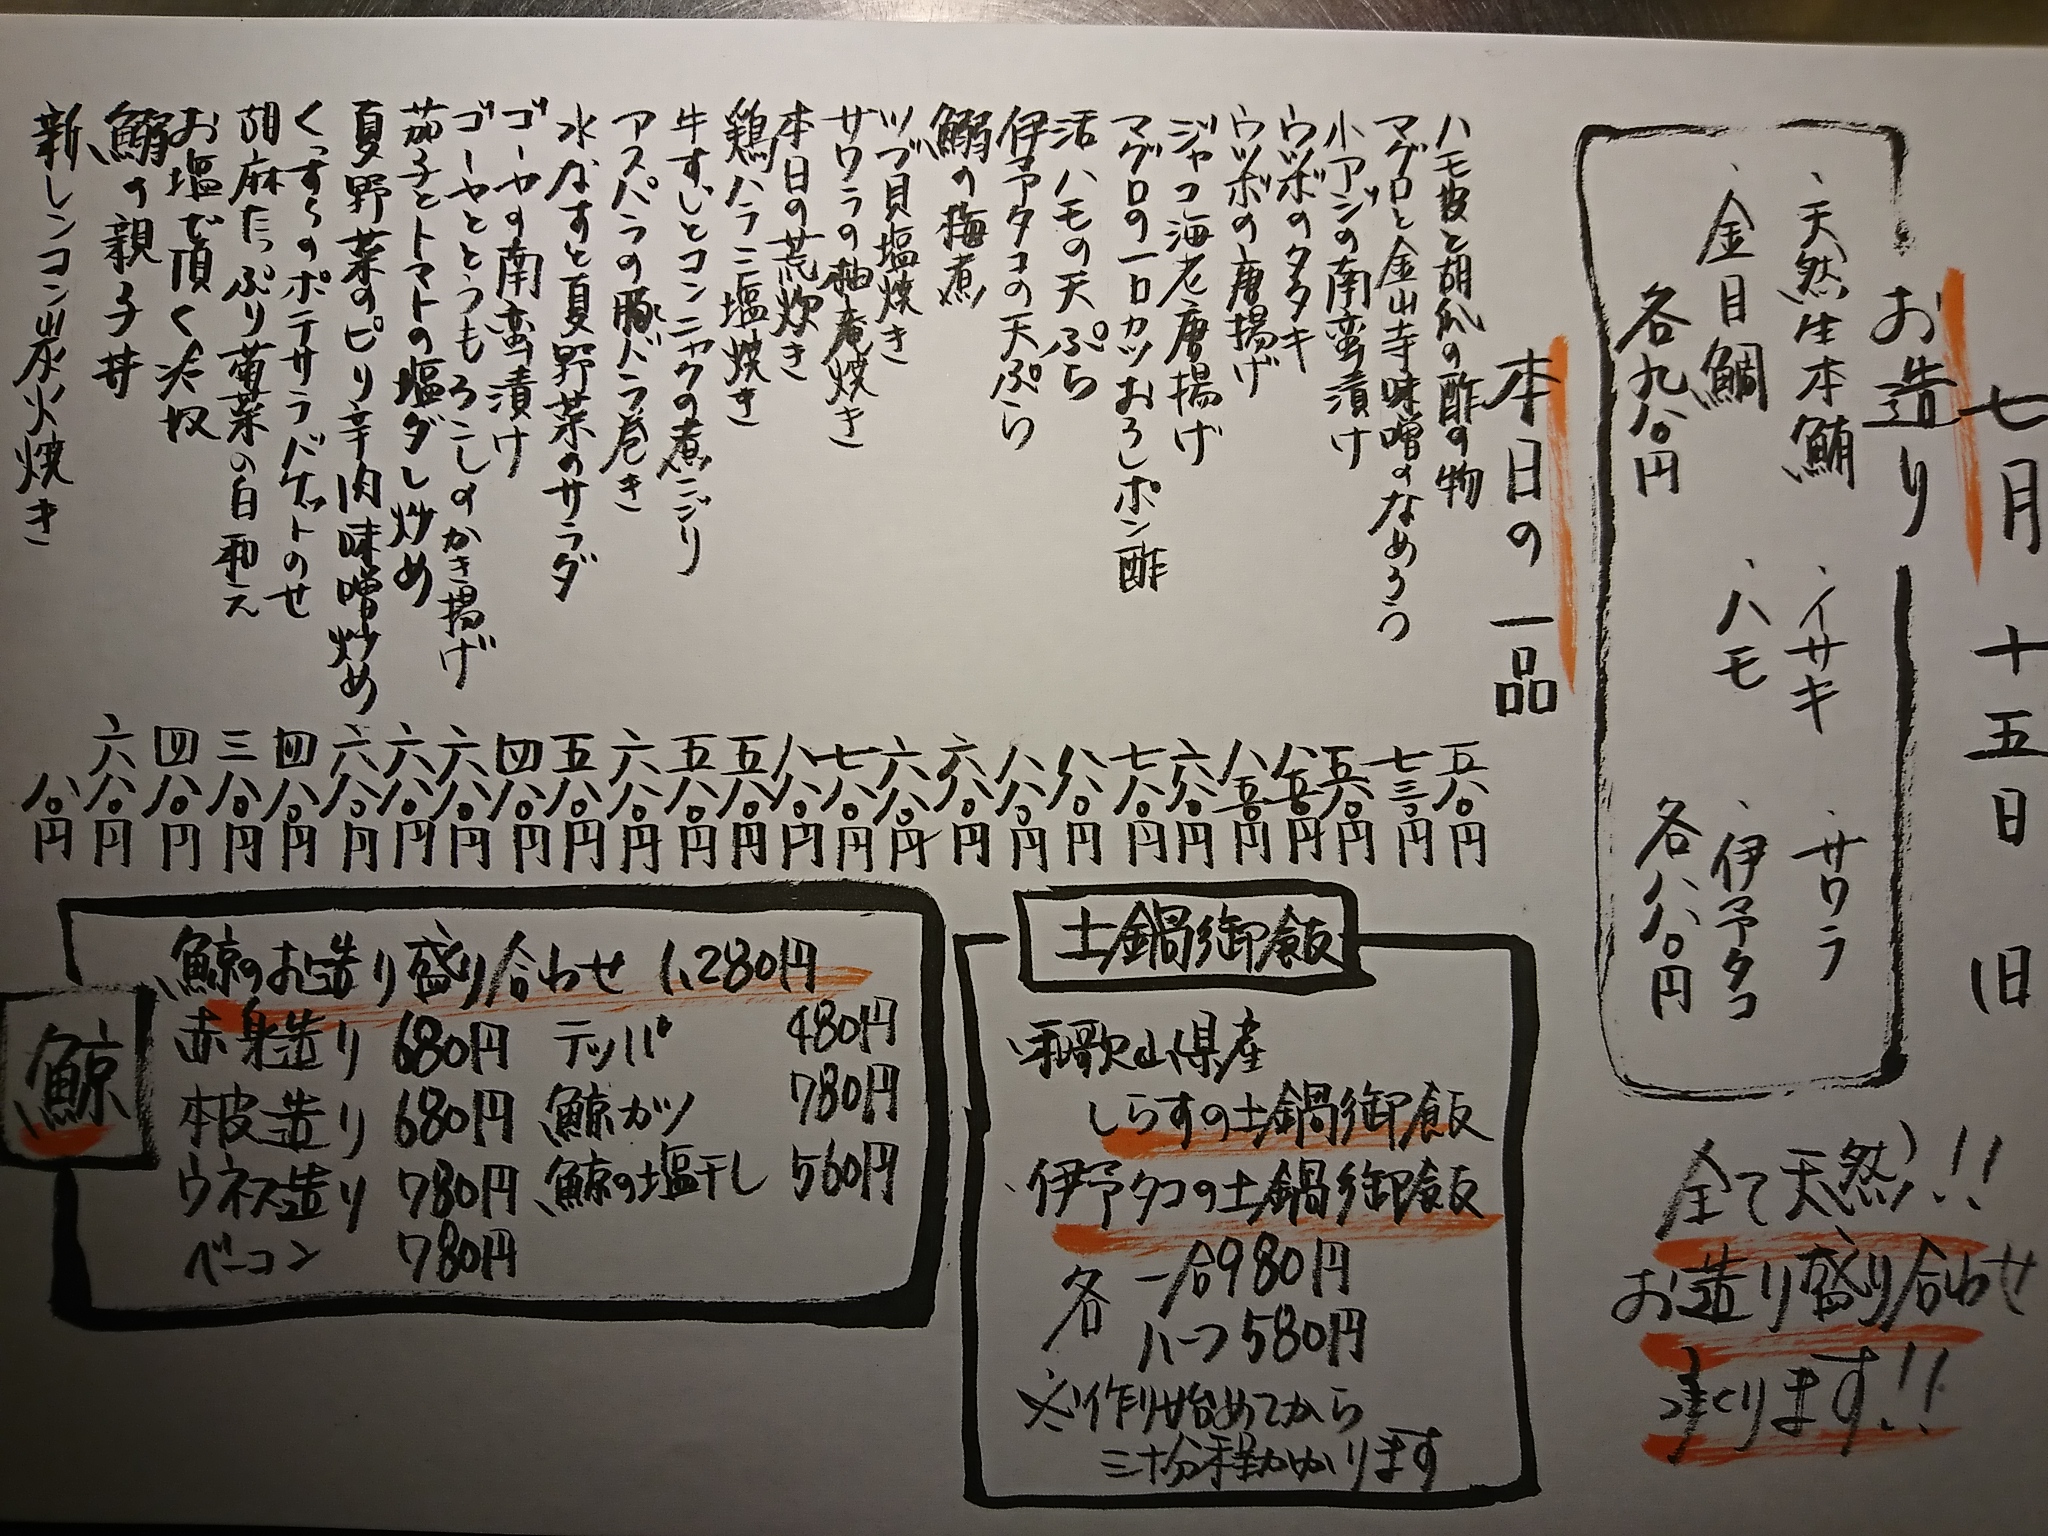 七月十五日 旧
お造り
・天然生本鮪 ・イサキ ・サワラ
・金目鯛 ・ハモ ・伊予タコ
各九八〇円 各八八〇円
全て天然!!
お造り盛り合わせ
承ります!!
本日の一品
ハモ皮と胡瓜の酢の物 五八〇円
マグロと金山寺味噌のなめろう 七三〇円
小アジの南蛮漬け 五八〇円
ウツボのタタキ 八五〇円
ウツボの唐揚げ 八五〇円
ジャコ海老唐揚げ 六八〇円
マグロの一口カツおろしポン酢 七八〇円
活ハモの天ぷら 八八〇円
伊予タコの天ぷら 八八〇円
鰯の梅煮 六八〇円
ツブ貝塩焼き 六八〇円
サワラの柚庵焼き 七八〇円
本日の荒炊き 八八〇円
鶏ハラミ塩焼き 五八〇円
牛すじとコンニャクの煮こごり 五八〇円
アスパラの豚バラ巻き 六八〇円
水なすと夏野菜のサラダ 五八〇円
ゴーヤの南蛮漬け 四八〇円
ゴーヤととうもろこしのかき揚げ 六八〇円
茄子とトマトの塩ダレ炒め 六八〇円
夏野菜のピリ辛肉味噌炒め 六八〇円
くっすらのポテサラバケットのせ 四八〇円
胡麻たっぷり菊菜の白和え 三八〇円
お塩で頂く冷奴 四八〇円
鰯の親子丼 六八〇円
新レンコン炭火焼き 八〇円
土鍋御飯
・和歌山県産
しらすの土鍋御飯
・伊予タコの土鍋御飯
各 一合980円
ハーフ580円
※作り始めてから
三十分程かかります
鯨
鯨のお造り盛り合わせ 1,280円
赤身造り 680円 テッパ 480円
本皮造り 680円 鯨カツ 780円
ウネス造り 780円 鯨の塩干し 560円
ベーコン 780円